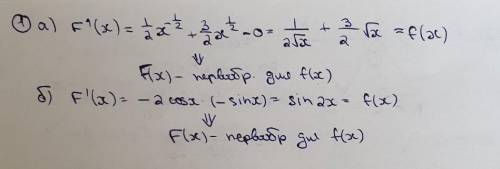 ① а) F'(x) = 1/2 x^(-1/2) + 3/2 x^(1/2) - 0 = 1/(2√x) + 3/2 √x = f(x)
⇓
F(x) - первообр. для f(x)
б) F'(x) = -2cosx · (-sinx) = sin2x = f(x)
⇓
F(x) - первообр для f(x)